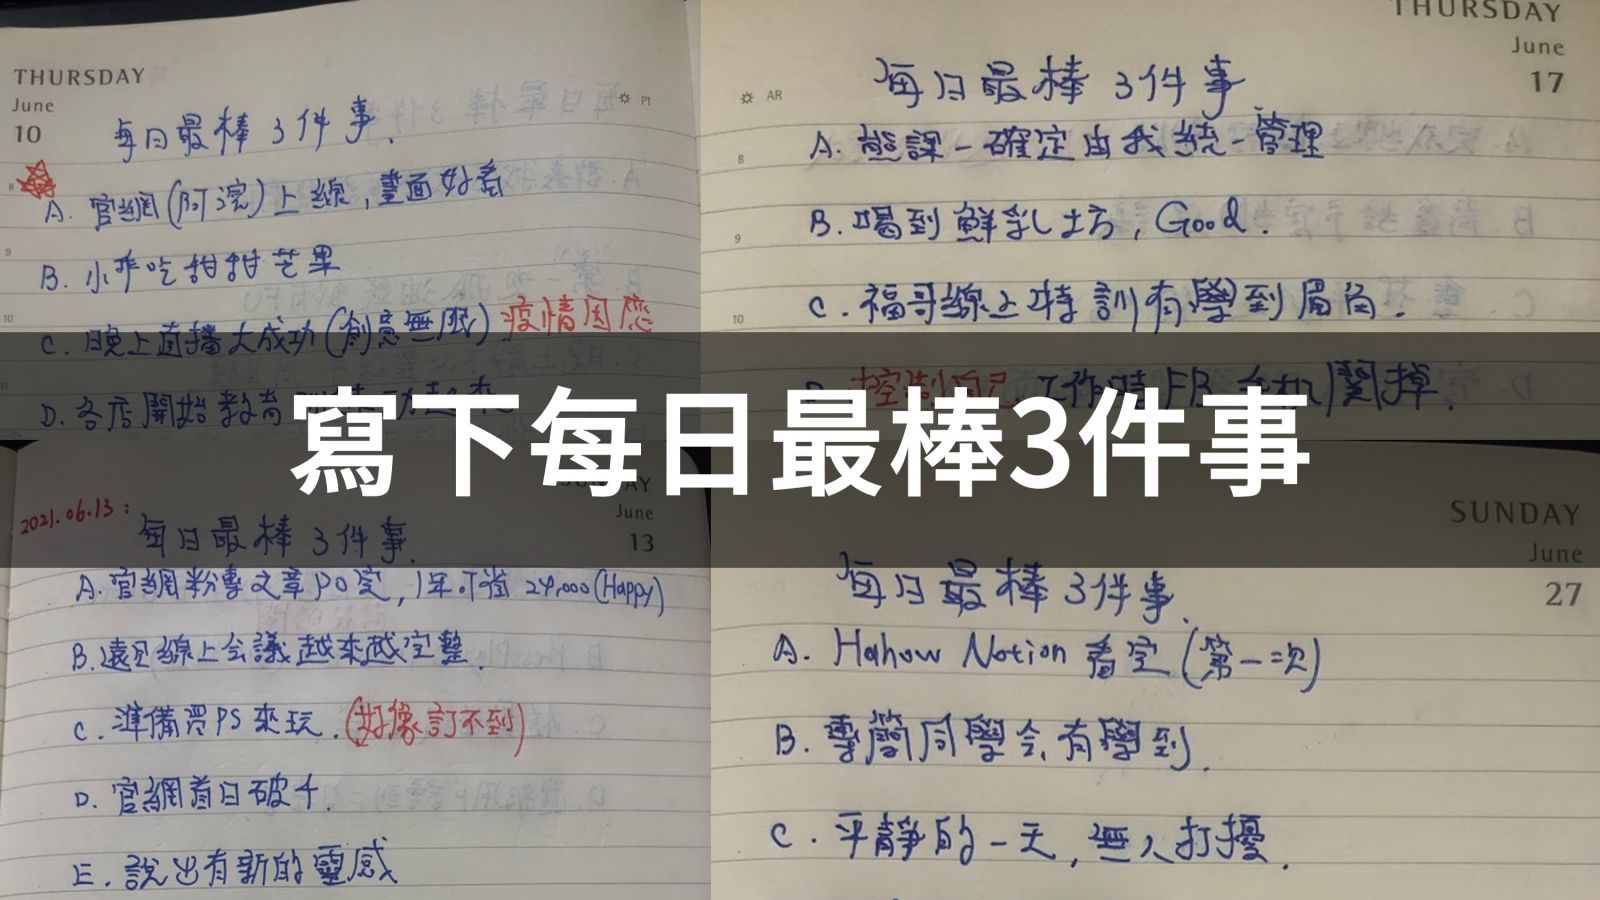 THURSDAY
June
10
每日最棒3件事.
A. 官網(阿滾)上線,畫面好看
B. 小乖吃甜甜芒果
C. 晚上直播大成功(創意無限). 疫情因應
D. 各店開始教育
THURSDAY
June
17
AR
每日最棒3件事
A. 熊課-確定由我統一管理
B. 喝到鮮乳坊, Good.
C. 福哥線上特訓有學到眉角.
控制自己, 工作時FB 手机關掉.
寫下每日最棒3件事
2021.06.13:
SUNDAY
June
13
每日最棒3件事.
A. 官網粉專文章PO完,1年可省24,000(Happy)
B. 遠見線上会議越來越完整.
C. 準備買PS來玩. (好像訂不到)
D. 官網首日破千.
E. 說出有新的靈感
SUNDAY
June
27
每日最棒3件事.
A. Hahow Notion 看完(第一次)
B. 專簡同學会,有學到.
C. 平靜的一天,無人打擾.